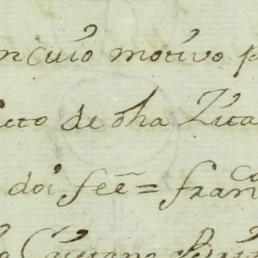 n cuio motivo p
cto de dha Zita
doi feê = fran^co
Cayetano